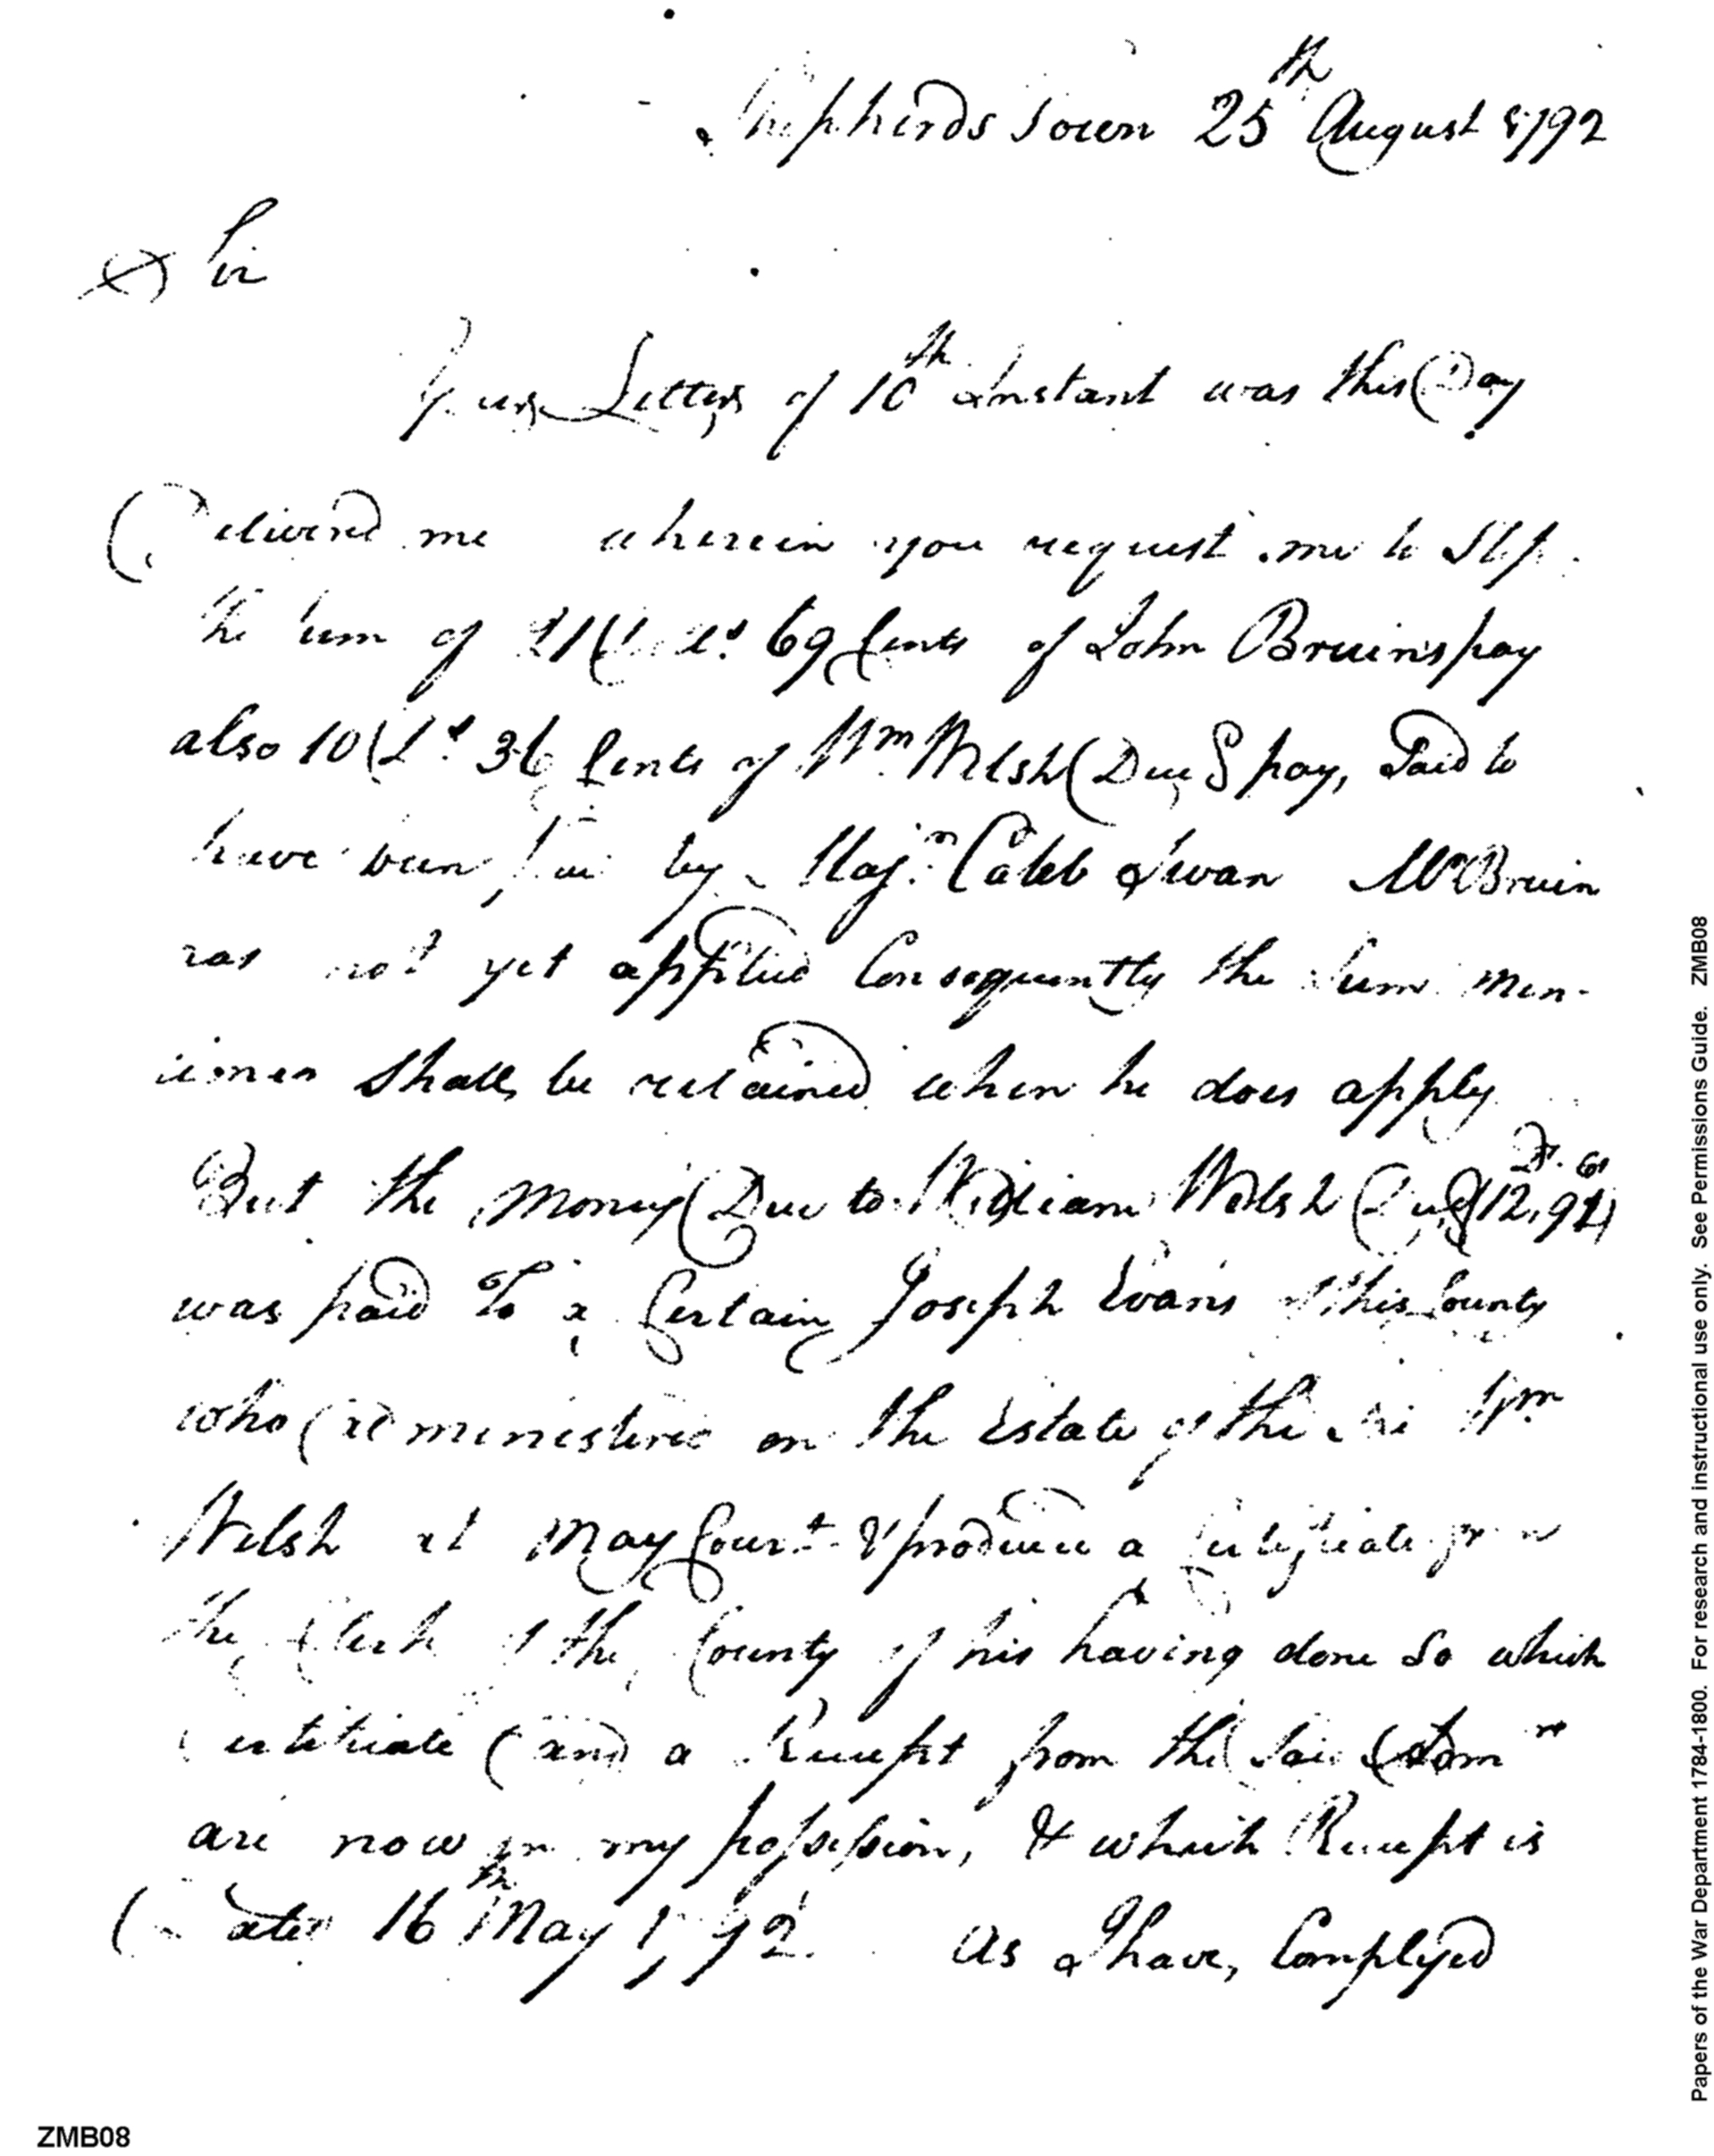 Shepherds Town 25th August 1792
Sir
Your Letter of 10th Instant was this Day
Delivered me wherein you request me to Stop
the Sum of Ds 69 Cents of John Bruins pay
also 10 Ds 36 Cents of Wm Welsh Dec'd pay, Said to
have been by Majr Caleb Swan Mr Bruin
has not yet applied Consequently the Sum men-
tioned Shall be retained when he does apply
But the money Due to William Welsh 12,94
was paid To a Certain Joseph Evans of this County
who administered on the Estate of the Sd Wm
Welsh at May Court & produced a Certificate from
the Clerk of the County of his having done So which
Certificate and a Receipt from the Said Adomr
are now in my possession, & which Receipt is
Dated 16th May 1792. As I have, Complyed
ZMB08
Papers of the War Department 1784-1800. For research and instructional use only. See Permissions Guide. ZMB08